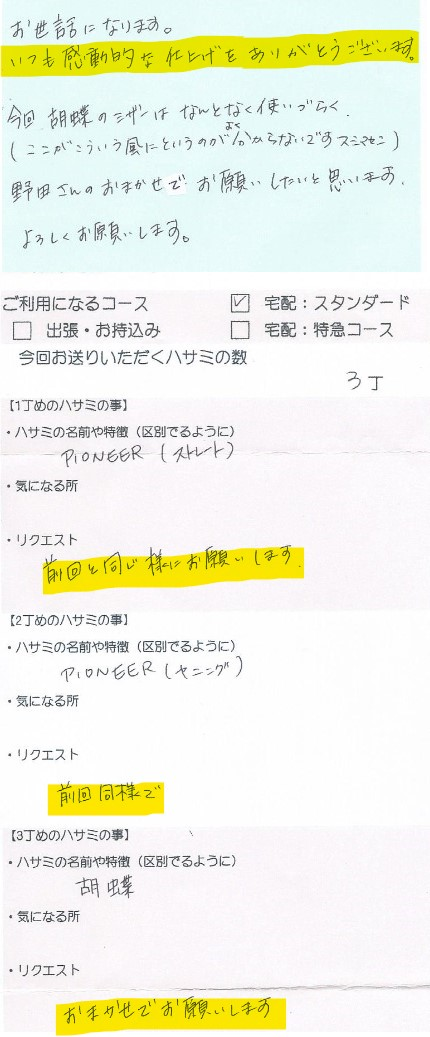 お世話になります。
いつも感動的な仕上げをありがとうございます。
今回 胡蝶のシザーは なんとなく使いづらく、
(ここがこういう風にというのがよく分からないですスミマセン)
野田さんのおまかせで お願いしたいと思います。
よろしくお願いします。
ご利用になるコース ☑ 宅配：スタンダード
□ 出張・お持込み □ 宅配：特急コース
今回お送りいただくハサミの数
3丁
【1丁めのハサミの事】
・ハサミの名前や特徴（区別でるように）
PIONEER (ストレート)
・気になる所
・リクエスト
前回と同じ様にお願いします。
【2丁めのハサミの事】
・ハサミの名前や特徴（区別でるように）
PIONEER (セニング)
・気になる所
・リクエスト
前回同様で
【3丁めのハサミの事】
・ハサミの名前や特徴（区別でるように）
胡蝶
・気になる所
・リクエスト
おまかせでお願いします